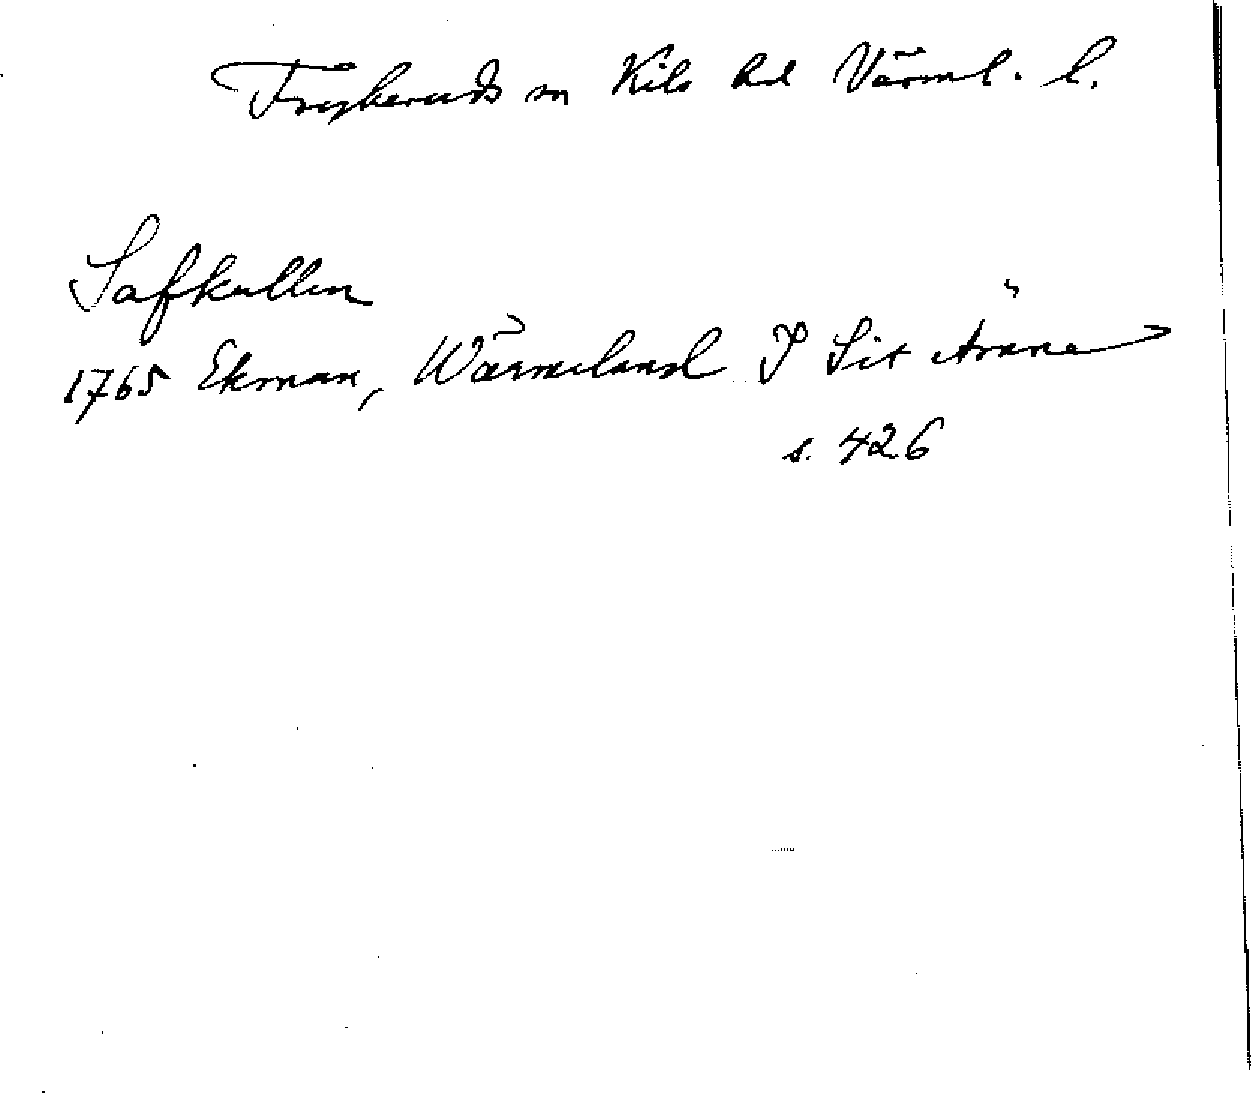 Frykeruds sn Kils hd Värml. l.
Safkullen
1765 Ekman, Wärmeland I Sit ämne
s. 426